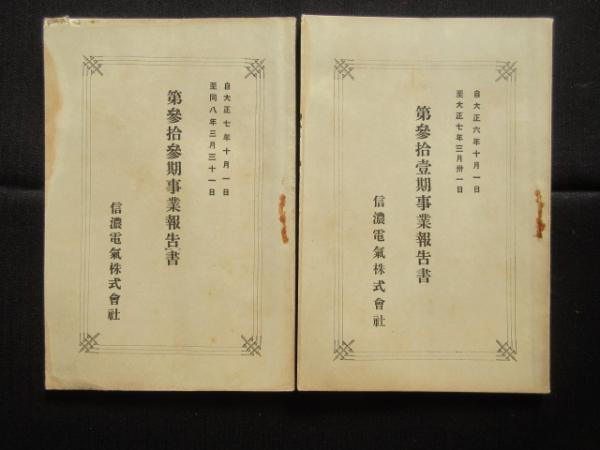 自大正七年十月一日
至同八年三月三十一日
第參拾參期事業報告書
信濃電氣株式會社
自大正六年十月一日
至大正七年三月卅一日
第參拾壹期事業報告書
信濃電氣株式會社